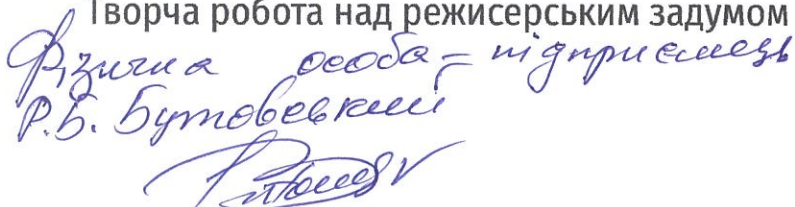 Творча робота над режисерським задумом
Фізична особа – підприємець
Р.Б. Бутовський